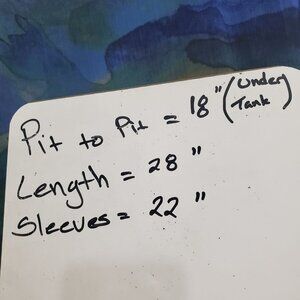 Pit to Pit = 18" (Under Tank)
Length = 28"
Sleeves = 22"